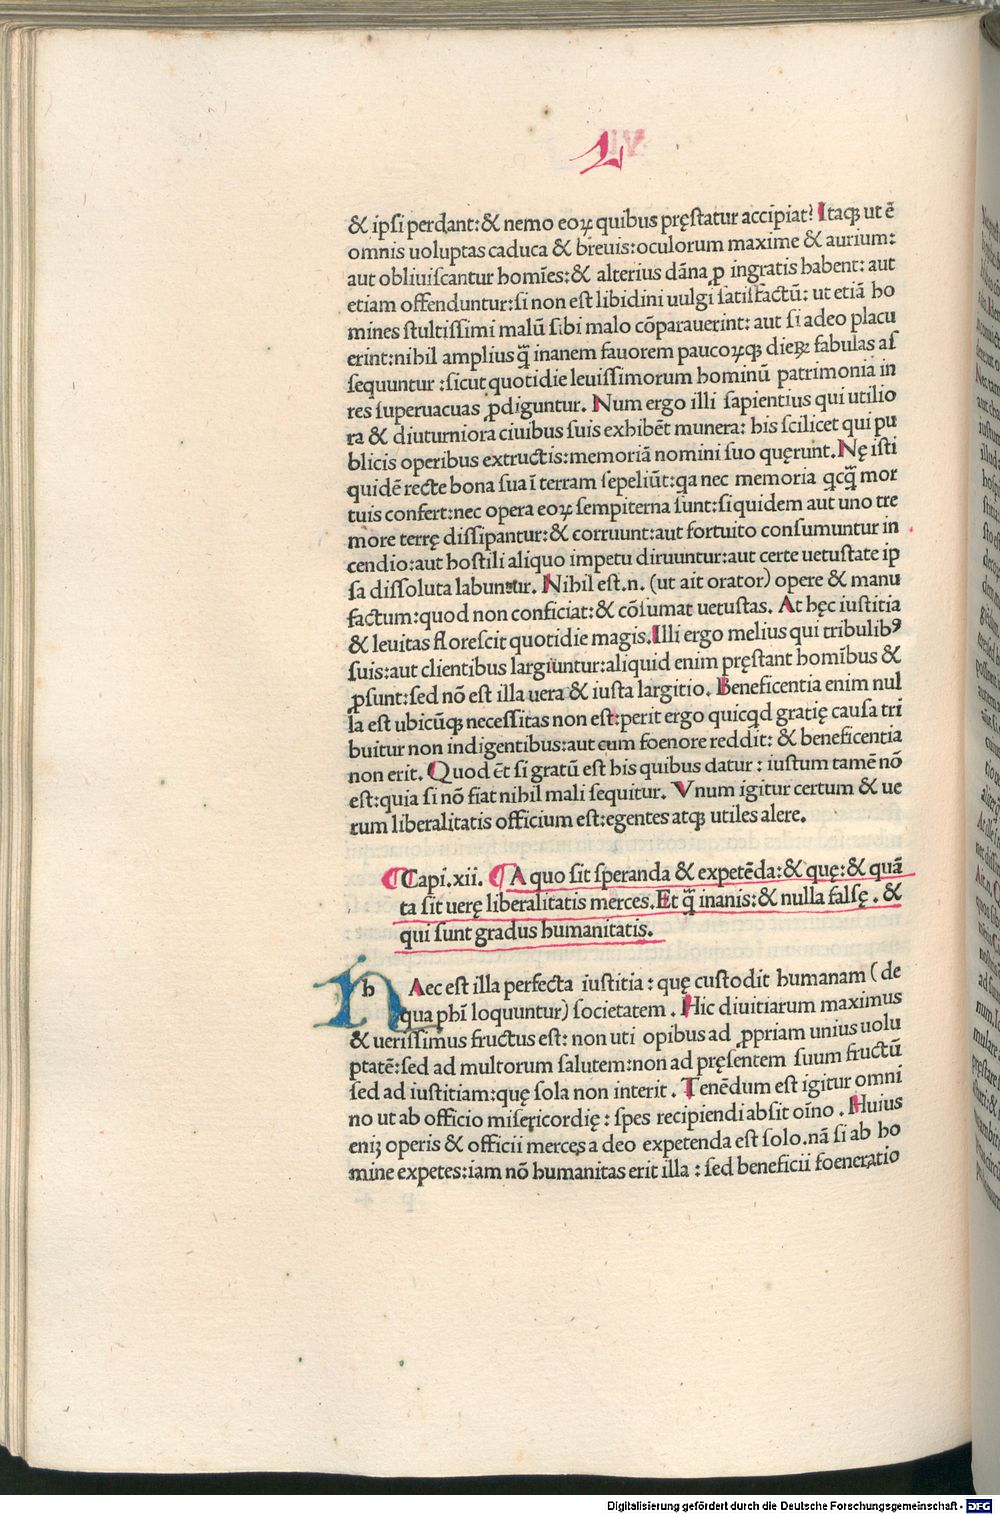 L VI
& ipſi perdant:& nemo eoꝝ quibus pręſtatur accipiat? Itaqꝫ ut ē
omnis uoluptas caduca & breuis:oculorum maxime & aurium:
aut obliuiſcantur homīes:& alterius dāna ꝓ ingratis habent: aut
etiam offenduntur:ſi non eſt libidini uulgi ſatiſfactū: ut etiā ho
mines ſtultiſſimi malū ſibi malo cōparauerint: aut ſi adeo placu
erint:nihil amplius q̄ inanem fauorem paucoꝝqꝫ dieꝝ fabulas aſ
ſequuntur :ſicut quotidie leuiſſimorum hominū patrimonia in
res ſuperuacuas ꝓdiguntur. Num ergo illi ſapientius qui utilio
ra & diuturniora ciuibus ſuis exhibēt munera: his ſcilicet qui pu
blicis operibus extructis:memoriā nomini ſuo quęrunt. Nę iſti
quidē recte bona ſua ī terram ſepeliūt:qa nec memoria qcq̄ mor
tuis confert:nec opera eoꝝ ſempiterna ſunt:ſiquidem aut uno tre
more terrę diſſipantur:& corruunt:aut fortuito conſumuntur in
cendio:aut hoſtili aliquo impetu diruuntur:aut certe uetuſtate ip
ſa diſſoluta labuntur. Nihil eſt.n. (ut ait orator) opere & manu
factum:quod non conficiat:& cōſumat uetuſtas. At hęc iuſtitia
& leuitas floreſcit quotidie magis.Illi ergo melius qui tribulibꝰ
ſuis:aut clientibus largiuntur:aliquid enim pręſtant homībus &
ꝓſunt:ſed nō eſt illa uera & iuſta largitio. Beneficentia enim nul
la eſt ubicūqꝫ neceſſitas non eſt:perit ergo quicqd gratię cauſa tri
buitur non indigentibus:aut cum foenore reddit: & beneficentia
non erit. Quod et̄ ſi gratū eſt his quibus datur : iuſtum tamē nō
eſt:quia ſi nō fiat nihil mali ſequitur. Vnum igitur certum & ue
rum liberalitatis officium eſt:egentes atqꝫ utiles alere.
¶Capi.xii. ¶A quo ſit ſperanda & expetēda:& quę:& quā
ta ſit uerę liberalitatis merces.Et q̄ inanis:& nulla falſę . &
qui ſunt gradus humanitatis.
h Aec eſt illa perfecta iuſtitia : quę cuſtodit humanam ( de
qua phī loquuntur) ſocietatem . Hic diuitiarum maximus
& ueriſſimus fructus eſt: non uti opibus ad ꝓpriam unius uolu
ptatē:ſed ad multorum ſalutem:non ad pręſentem ſuum fructū
ſed ad iuſtitiam:quę ſola non interit . Tenēdum eſt igitur omni
no ut ab officio miſericordię : ſpes recipiendi abſit oīno . Huius
eniꝫ operis & officii merces a deo expetenda eſt ſolo.nā ſi ab ho
mine expetes:iam nō humanitas erit illa : ſed beneficii foeneratio
Digitalisierung gefördert durch die Deutsche Forschungsgemeinschaft - DFG